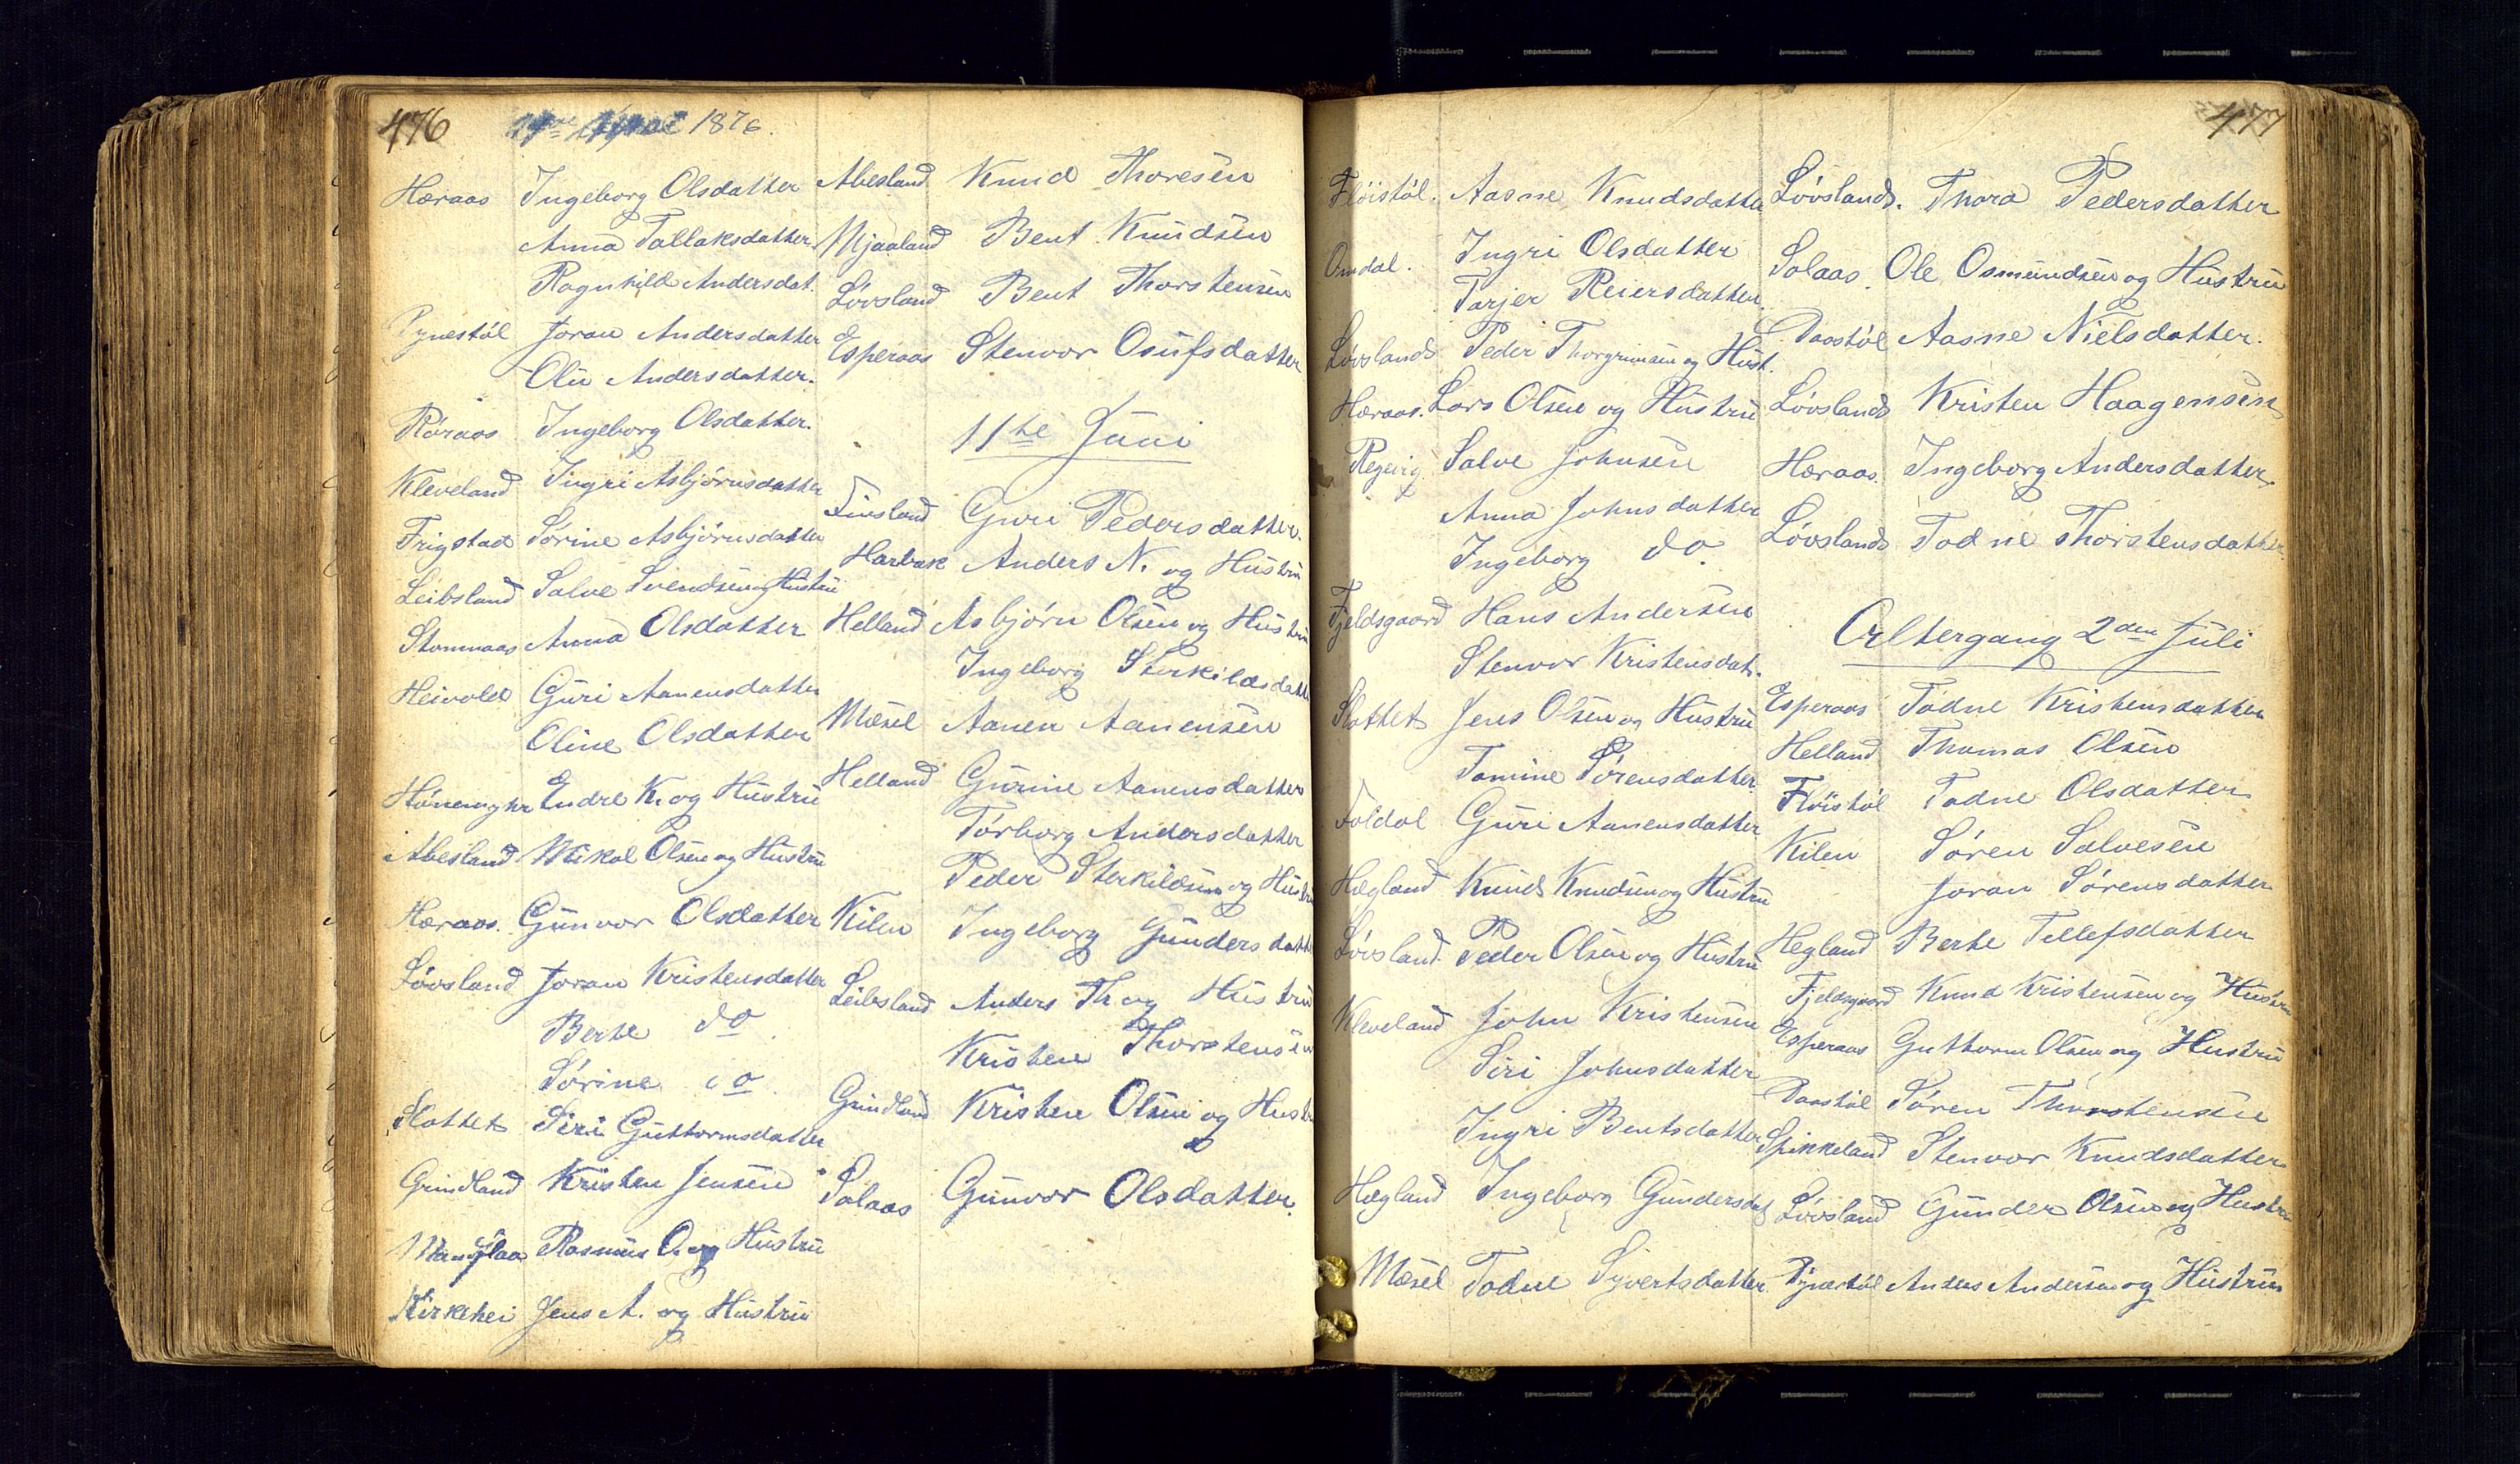 476
1876.
Hæraas Ingeborg Olsdatter
Anna Tallaksdatter
Ragnhild Andersdat.
Pynestøl Joran Andersdatter
Olu Andersdatter.
Røraas Ingeborg Olsdatter.
Kleveland Ingri Asbjørnsdatter
Frigstad Sørine Asbjørnsdatter
Leibsland Salve Svendsen og Hustru
Stommaas Anna Olsdatter
Heivold Guri Aanensdatter
Oline Olsdatter
Endre K. og Hustru
Abesland Mikal Olsen og Hustru
Hæraas. Gunvor Olsdatter
Løvsland Joran Kristensdatter
Berte do
Sørine do
Slottet Siri Guttormsdatter
Grindland Kristen Jensen
Rasmus O. og Hustru
Kirkehei Jens A. og Hustru
Abesland Knud Thoresen
Mjaaland Bent Knudsen
Løvsland Bent Thorstensen
Esperaas Stenvor Osufsdatter
11te Juni
Finsland Guri Pedersdatter.
Harbak Anders N. og Hustru
Helland Asbjørn Olsen og Hustru
Ingeborg Sterkildsdatter
Mæsel Aanen Aanensen
Helland Gurine Aanensdatter
Tørborg Andersdatter
Peder Sterkildsen og Hustru
Kilen Ingeborg Gundersdatt
Leibsland Anders Th og Hustru
Kristen Thorstensen
Grindland Kristen Olsen og Hustr
Solaas Gunvor Olsdatter.
477
Fløistøl. Aasne Knudsdatter
Omdal. Ingri Olsdatter
Tarjer Reiersdatter.
Løvsland Peder Thorgrimsen og Hust.
Hæraas. Lars Olsen og Hustru
Regevig Salve Johnsen
Anna Johnsdatter
Ingeborg do
Fjeldsgaard Hans Andersen
Stenvor Kristensdat.
Slottet Jens Olsen og Hustru
Tomine Sørensdatter
Foldal Guri Aanensdatter
Hægland Knud Knudsen og Hustru
Løvsland Peder Olsen og Hustru
Kleveland John Kristensen
Siri Johnsdatter
Ingri Bentsdatter
Hægland Ingeborg Gundersdat
Mæsel Todne Syvertsdatter
Løvsland. Thora Pedersdatter
Solaas. Ole Osmundsen og Hustru
Daastøl Aasne Nielsdatter.
Løvsland Kristen Haagensen
Hæraas. Ingeborg Andersdatter.
Løvsland Todne Thorstensdatter
Altergang 2den Juli
Esperaas Todne Kristensdatter
Helland Thomas Olsen
Fløistøl Todne Olsdatter
Kilen Søren Salvesen
Joran Sørensdatter
Hegland Berte Tellefsdatter
Fjeldsgaard Knud Kristensen og Hustru
Esperaas Guttorm Olsen og Hustru
Daastøl Søren Thorstensen
Spikkeland Stenvor Knudsdatter
Løvsland Gunder Olsen og Hustru
Pynestøl Anders Andersen og Hustru